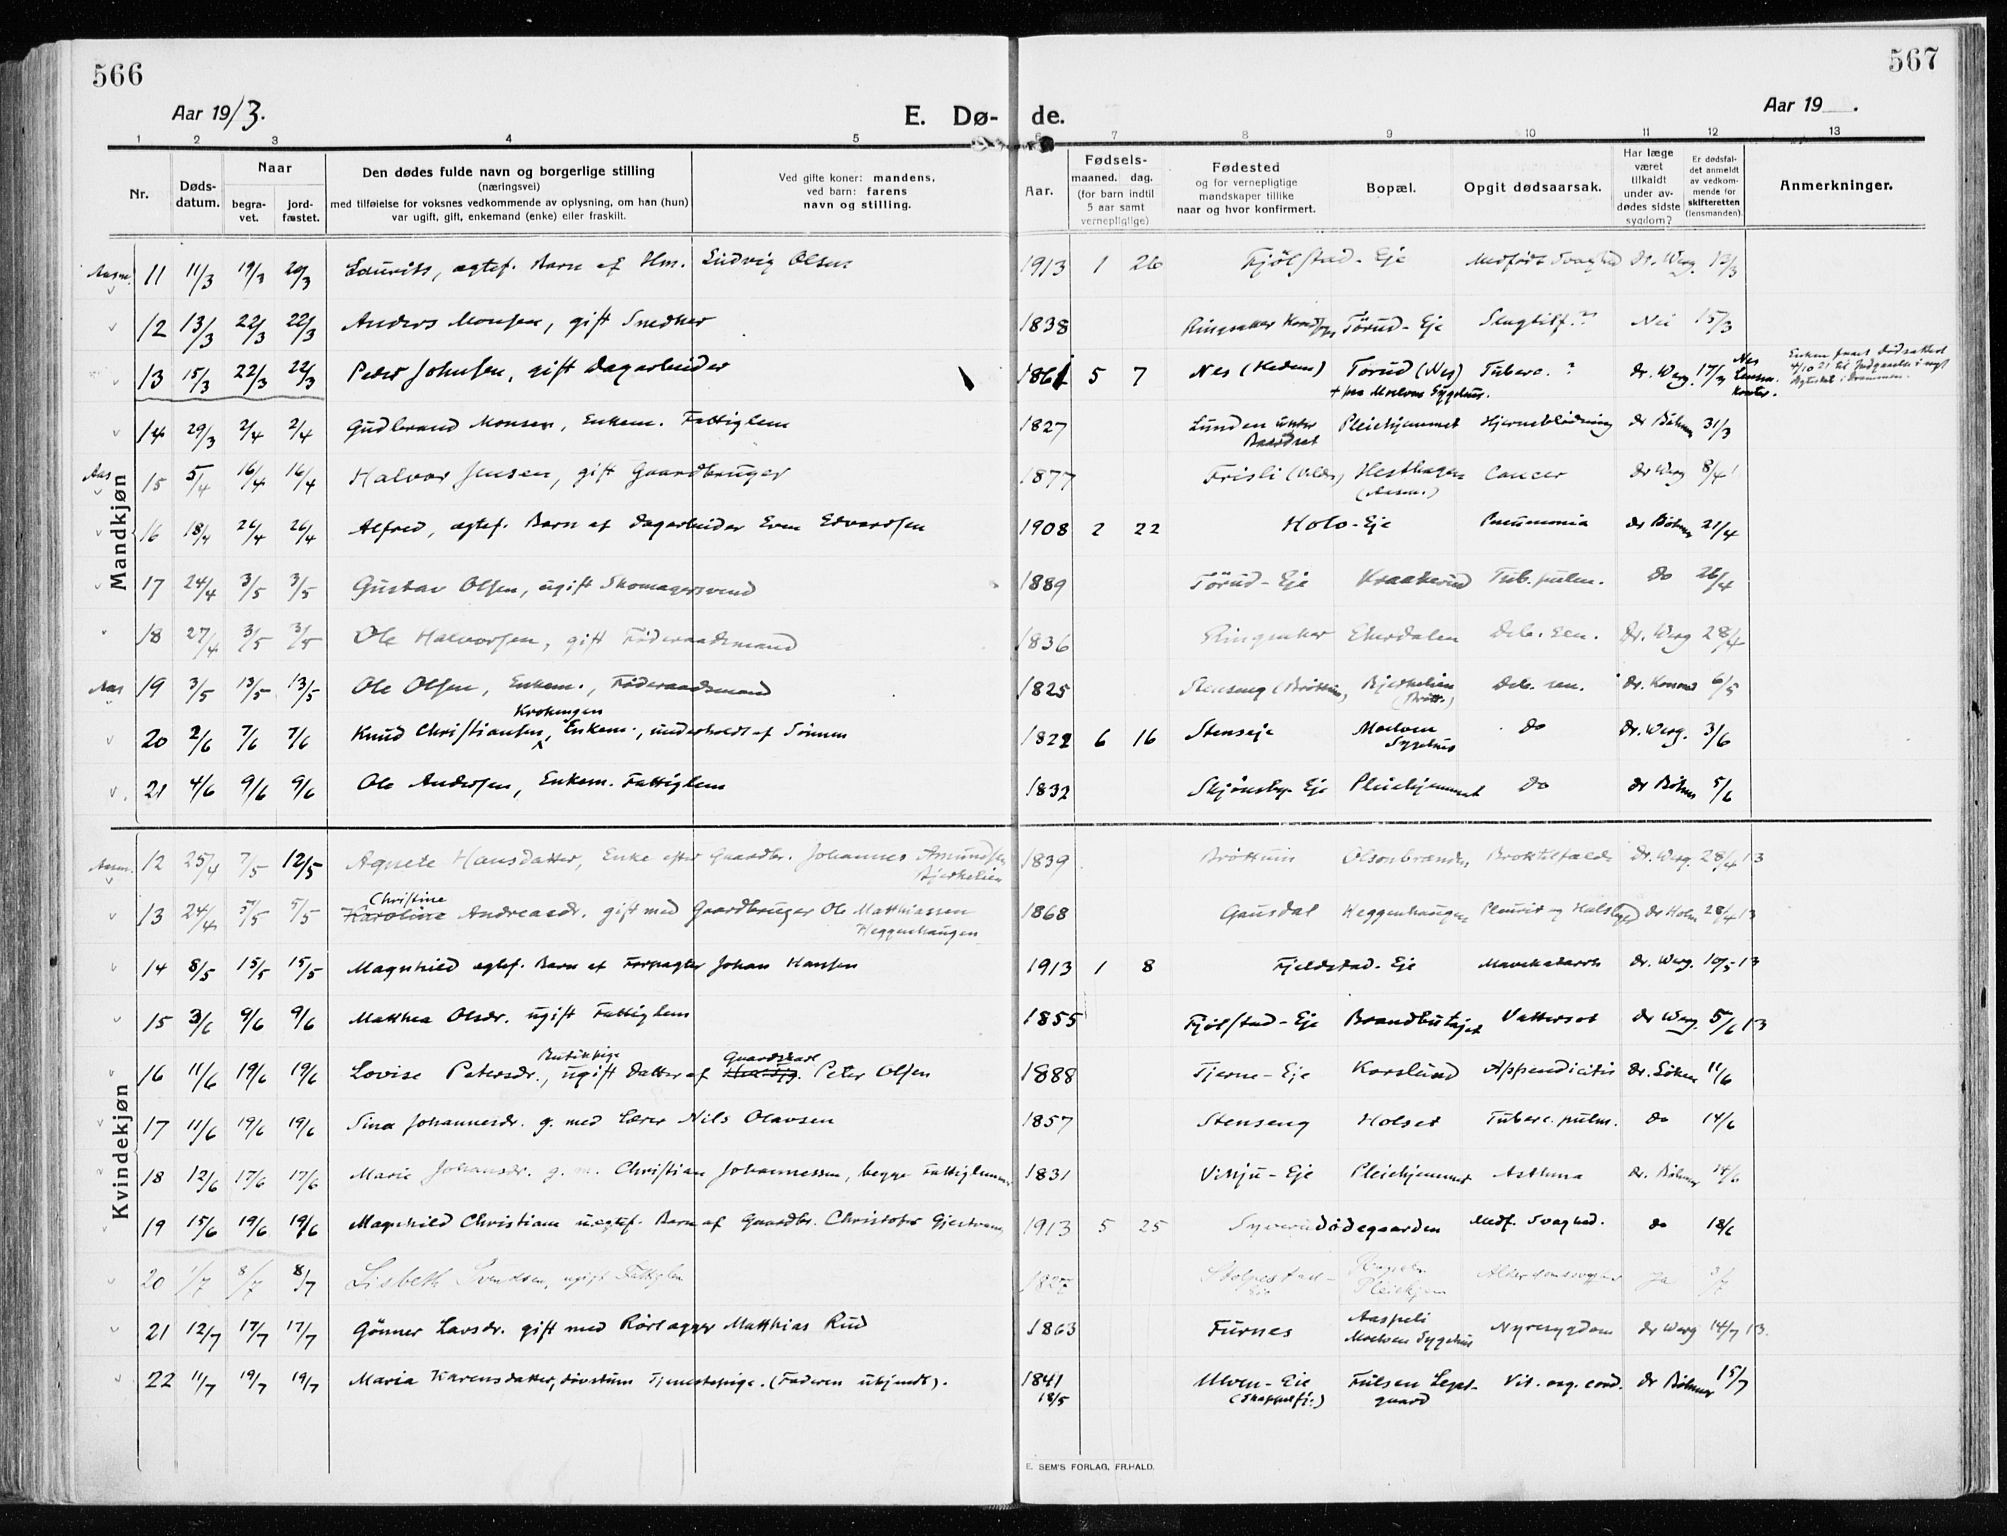 566
567
Aar 1913.
E. Dø-
de.
Aar 19 .
1 2 3 4 5 6 7 8 9 10 11 12 13
Nr.
Døds-
datum.
Naar
begra-
vet.
jord-
fæstet.
Den dødes fulde navn og borgerlige stilling
(næringsvei)
med tilføielse for voksnes vedkommende av oplysning, om han (hun)
var ugift, gift, enkemand (enke) eller fraskilt.
Ved gifte koner: mandens,
ved barn: farens
navn og stilling.
Aar.
Fødsels-
maaned. dag.
(for barn indtil
5 aar samt
vernepligtige)
Fødested
og for vernepligtige
mandskaper tillike
naar og hvor konfirmert.
Bopæl.
Opgit dødsaarsak.
Har læge
været
tilkaldt
under av-
dødes sidste
sygdom?
Er dødsfal-
det anmeldt
av vedkom-
mende for
skifteretten
(lensmanden).
Anmerkninger.
Mandkjøn
11 11/3 19/3 20/3 Laurits, ægtef. Barn af Hm. Ludvig Olsen 1913 1 26 Fjølstad - Eje Medfødt Svaghed Dr. Werg. 13/3
12 13/3 22/3 22/3 Anders Monsen, gift Snedker 1838 Ringsaker Tørud - Eje Slagtilf.? Nei 15/3
13 15/3 22/3 22/3 Peder Johnsen, gift Dagarbeider 1861 5 7 Nes (Hedem) Tørud (Nes) Tuberc. ? Dr. Werg. 17/3 Nes
+ paa Moelven Sygehus.
14 29/3 2/4 2/4 Gudbrand Monsen, Enkem. Fattiglem 1827 Lunden under Pleiehjemmet Hjerneblødning dr Bøhmer 31/3
Baardset
Aas 15 5/4 16/4 16/4 Halvor Jensen, gift Gaardbruger 1877 Frisli Hesthagen Cancer dr Werg 8/4
16 18/4 26/4 26/4 Alfred, ægtef. Barn af Dagarbeider Even Edvardsen 1908 2 22 Holo - Eje Pneumonia dr Bøhmer 21/4
17 24/4 3/5 3/5 Gustav Olsen, ugift Skomagersvend 1889 Tørud - Eje Kraakerud Tub. pulm. do 26/4
18 27/4 3/5 3/5 Ole Halvorsen, gift Føderaadsmand 1836 Ringsaker Ekerdalen Deb. sen. Dr. Werg 28/4
Aas 19 3/5 13/5 13/5 Ole Olsen, Enkem., Føderaadsmand 1825 Stenseng (Brøttum) Bjerkelien Deb. sen. Dr. Konow 6/5
(Brøtt.)
Krokengen
20 2/6 7/6 7/6 Knud Christiansen, Enkem., underholdt af Sønnen 1822 6 16 Stenseje Moelven do Dr. Werg. 3/6
Sygehus
21 4/6 9/6 9/6 Ole Andersen, Enkem. Fattiglem 1832 Skjønsby Eje Pleiehjemmet do dr Bøhmer 5/6
Kvindekjøn
12 25/4 7/5 12/5 Agnete Hansdatter, Enke efter Gaardbr. Johannes Amundsen 1839 Brøttum Olsenbranden Dr. Werg. 28/4 13
Bjerkelien
Christine
13 24/4 5/5 5/5 Karoline Andreasdr. gift med Gaardbruger Ole Matthiassen 1868 Gausdal Heggenhaugen Pleurit og dr Holm 28/4 13
Heggenhaugen
14 8/5 15/5 15/5 Magnhild ægtef. Barn af Forpagter Johan Hansen 1913 1 8 Fjeldstad - Eje Mavekatarrh Dr. Werg. 10/5 13
15 3/6 9/6 9/6 Mathea Olsdr. ugift Fattiglem 1855 Fjølstad - Eje Vattersot dr Werg 5/6 13
Butikpige Gaardskarl
16 11/6 19/6 19/6 Lovise Petersdr., ugift Datter af Peter Olsen 1888 Tjerne - Eje Korslund Appendicitis 11/6
17 11/6 19/6 19/6 Sina Johannesdr. g. med Lærer Nils Olavsen 1857 Stenseng Holset Tuberc. pulm. do 14/6
18 12/6 17/6 17/6 Marie Johansdr. g. m. Christian Johannessen, begge Fattiglemmer 1831 Vikju - Eje Pleiehjemmet Asthma dr. Bøhmer 14/6
19 15/6 19/6 19/6 Magnhild Christiane uægtef. Barn af Gaardbr. Christofer Gjestvang 1913 5 25 Syverud Ødegaarden Medf. Svaghed. do 18/6
20 1/7 8/7 8/7 Lisbeth Svendsen, ugift Fattiglem 1827 Stolpestad - Pleiehjem Ja 3/7
21 12/7 17/7 17/7 Gønner Larsdr. gift med Rørlægger Matthias Rud 1863 Furnes Aaspeli Nyresygdom dr Werg 14/7 13.
Moelven Sygehus
22 11/7 19/7 19/7 Maria Karensdatter, døvstum Tjenestepige. (Faderen ukjendt). 1841 Ulven - Eje Vit. org. cord. dr Bøhmer 15/7
18/5
E. SEM'S FORLAG, FR.HALD.